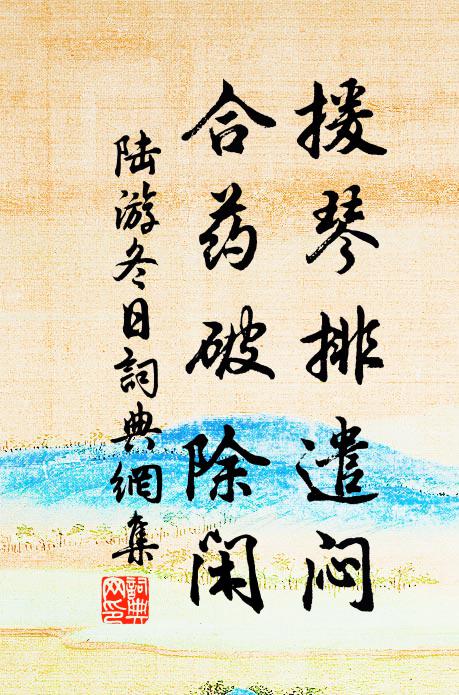 援琴排遣闷
合药破除闲
陆游冬日詞典網集
詞典网印